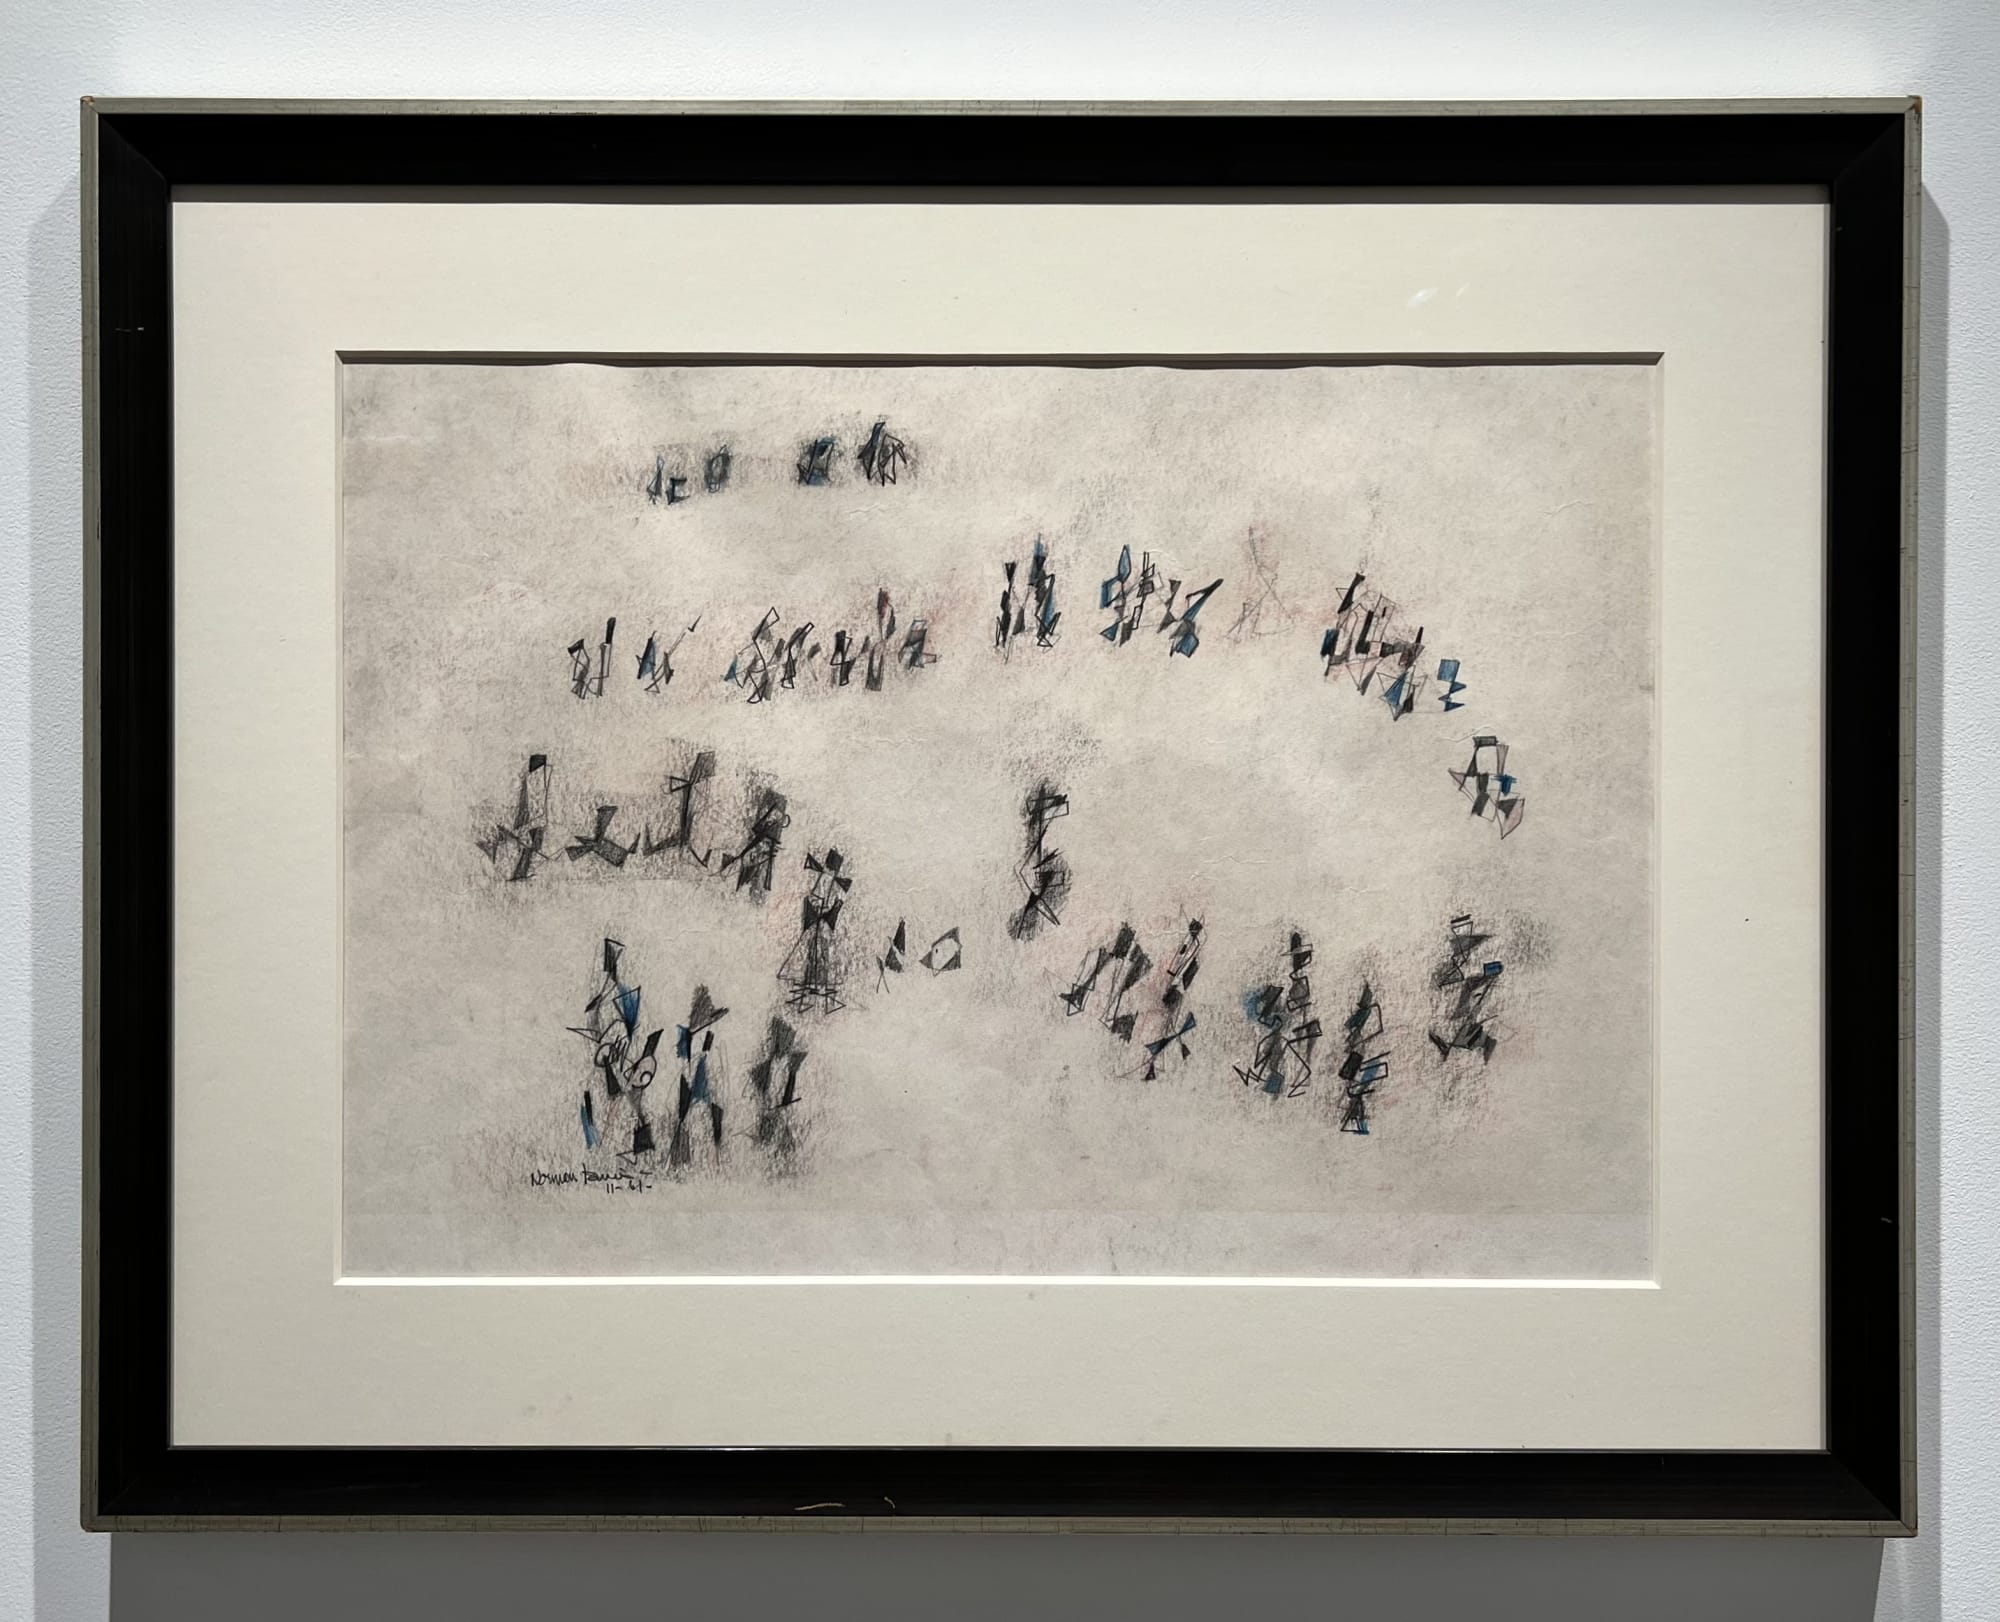 Norman Lewis
11-61-